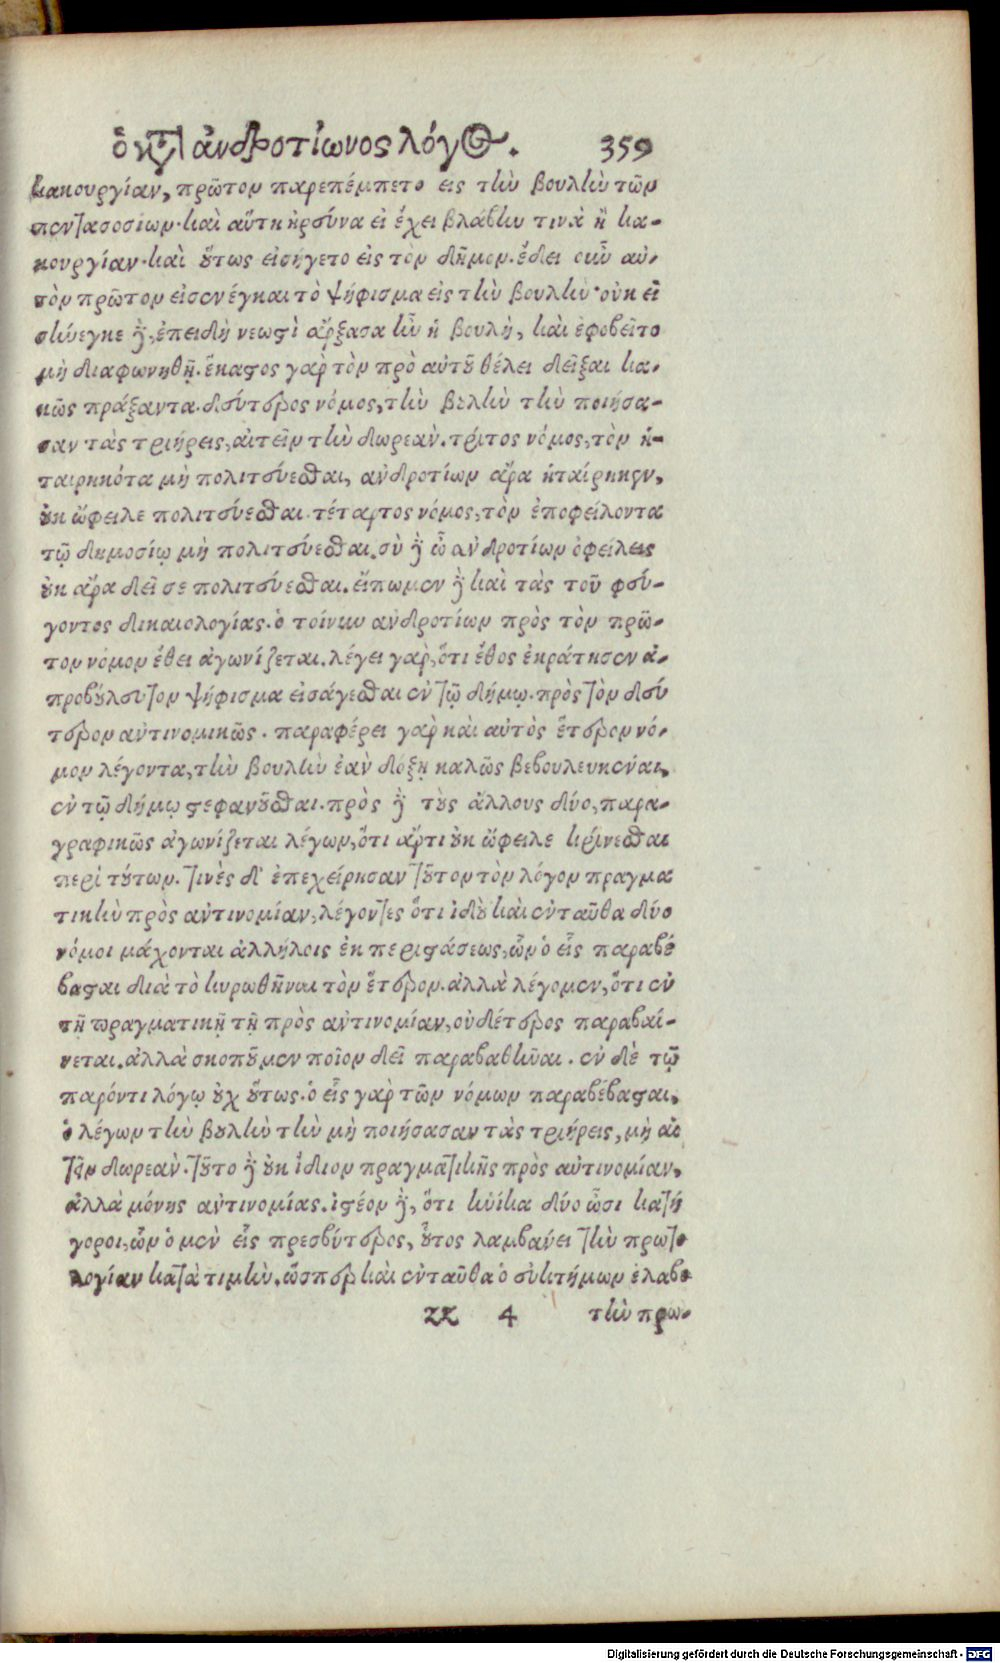 ὁ κατ' ἀνδροτίωνος λόγος. 359
κακουργίαν, πρῶτον παρεπέμπετο εἰς τὴν βουλὴν τῶν
πεντακοσίων· καὶ αὕτη ἠρεύνα εἰ ἔχει βλάβην τινὰ ἢ κα-
κουργίαν· καὶ οὕτως εἰσήγετο εἰς τὸν δῆμον. ἔδει οὖν αὐ-
τὸν πρῶτον εἰσενέγκαι τὸ ψήφισμα εἰς τὴν βουλὴν· οὐκ εἰ
σήνεγκε δὲ, ἐπειδὴ νεωστὶ ἄρξασα ἦν ἡ βουλὴ, καὶ ἐφοβεῖτο
μὴ διαφωνηθῇ. ἕκαστος γὰρ τὸν πρὸ αὐτοῦ θέλει δεῖξαι κα-
κῶς πράξαντα. δεύτερος νόμος, τὴν βουλὴν τὴν ποιήσα-
σαν τὰς τριήρεις, αἰτεῖν τὴν δωρεὰν. τρίτος νόμος, τὸν ἡ-
ταιρηκότα μὴ πολιτεύεσθαι, ἀνδροτίων ἄρα ἡταίρηκεν,
οὐκ ὤφειλε πολιτεύεσθαι. τέταρτος νόμος, τὸν ἐποφείλοντα
τῷ δημοσίῳ μὴ πολιτεύεσθαι. σὺ δὲ ὦ ἀνδροτίων ὀφείλεις
οὐκ ἄρα δεῖ σε πολιτεύεσθαι. εἴπωμεν δὲ καὶ τὰς τοῦ φεύ-
γοντος δικαιολογίας. ὁ τοίνυν ἀνδροτίων πρὸς τὸν πρῶ-
τον νόμον ἔθει ἀγωνίζεται. λέγει γὰρ, ὅτι ἔθος ἐκράτησεν ἀ-
προβούλευτον ψήφισμα εἰσάγεσθαι ἐν τῷ δήμῳ. πρὸς τὸν δεύ
τερον ἀντινομικῶς. παραφέρει γὰρ καὶ αὐτὸς ἕτερον νό-
μον λέγοντα, τὴν βουλὴν ἐὰν δόξῃ καλῶς βεβουλευκέναι,
ἐν τῷ δήμῳ στεφανοῦσθαι. πρὸς δὲ τοὺς ἄλλους δύο, παρα-
γραφικῶς ἀγωνίζεται λέγων, ὅτι ἄρτι οὐκ ὤφειλε κρίνεσθαι
περὶ τούτων. τινὲς δὲ ἐπεχείρησαν τοῦτον τὸν λόγον πραγμα
τικὴν πρὸς ἀντινομίαν, λέγοντες ὅτι ἰδοὺ καὶ ἐνταῦθα δύο
νόμοι μάχονται ἀλλήλοις ἐκ περιστάσεως, ὧν ὁ εἷς παραβέ
βασται διὰ τὸ κυρωθῆναι τὸν ἕτερον. ἀλλὰ λέγομεν, ὅτι ἐν
τῇ πραγματικῇ τῇ πρὸς ἀντινομίαν, οὐδέτερος παραβαί-
νεται. ἀλλὰ σκοποῦμεν ποῖον δεῖ παραβαθῆναι. ἐν δὲ τῷ
παρόντι λόγῳ οὐχ οὕτως. ὁ εἷς γὰρ τῶν νόμων παραβέβασται,
ὁ λέγων τὴν βουλὴν τὴν μὴ ποιήσασαν τὰς τριήρεις, μὴ αἰ
τεῖν δωρεὰν. τοῦτο δὲ οὐκ ἴδιον πραγματικῆς πρὸς ἀντινομίαν,
ἀλλὰ μόνης ἀντινομίας. ἰστέον δὲ, ὅτι ἡνίκα δύο ὦσι κατή
γοροι, ὧν ὁ μὲν εἷς πρεσβύτερος, οὗτος λαμβάνει τὴν πρωτο
λογίαν κατὰ τιμὴν. ὥσπερ καὶ ἐνταῦθα ὁ εὐκτήμων ἔλαβε
zz 4 τὴν πρω-
Digitalisierung gefördert durch die Deutsche Forschungsgemeinschaft - DFG